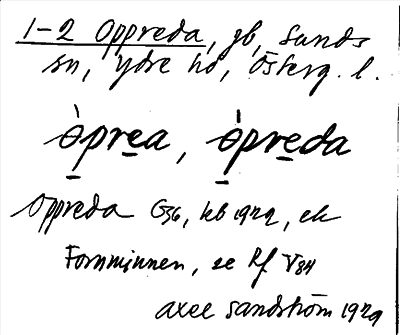 1-2 Oppreda, gb, Sunds
sn, Ydre hd, Österg. l.
ə̀prea, ə̀preda
Oppreda G36, kb 1929, ek
Fornminnen, se Rf V84
Axel Sandström 1929